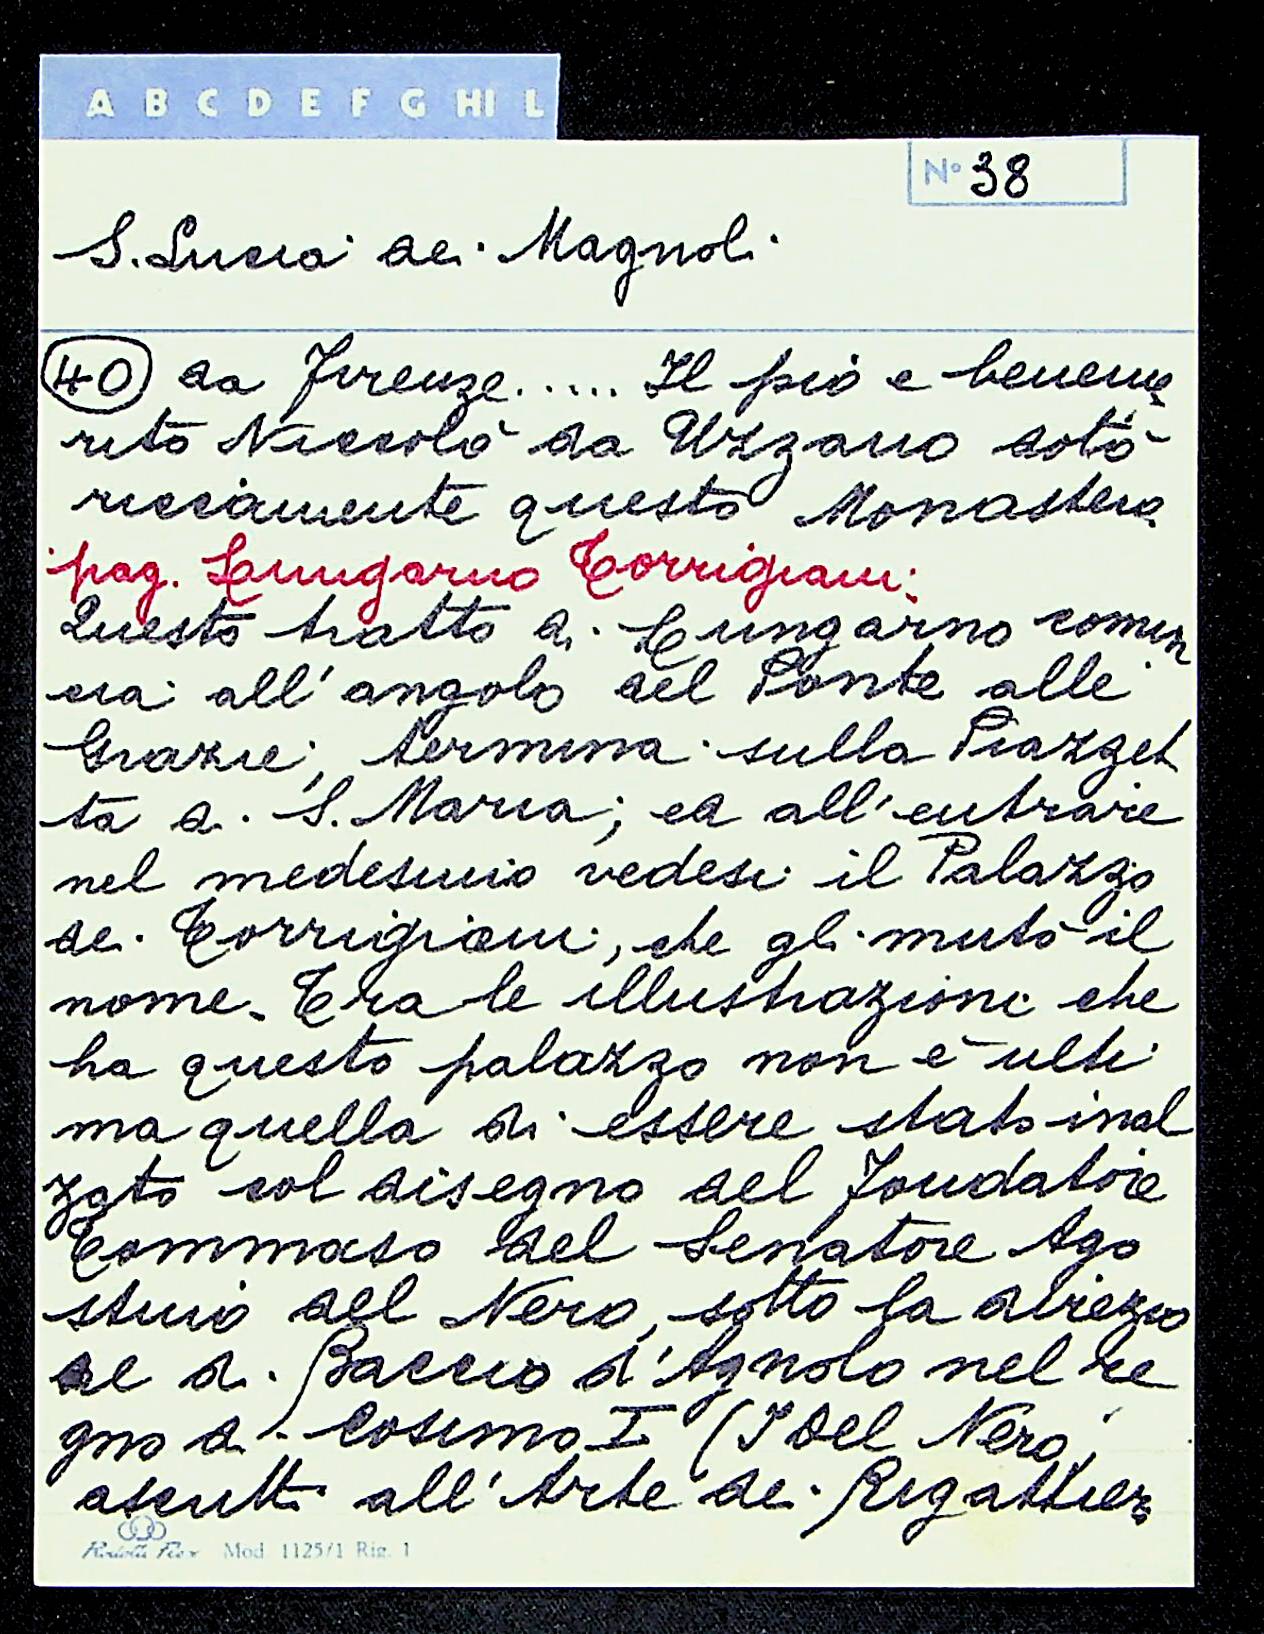 A B C D E F G HI L
N° 38
S. Lucia dei Magnoli
40 da Firenze..... Il pio e beneme
rito Niccolò da Uzzano dotò
riccamente questo Monastero
pag. Lungarno Torrigiani:
Questo tratto di Lungarno comin
cia all'angolo del Ponte alle
Grazie, termina sulla Piazzet
ta di S. Maria; ed all'entrare
nel medesimo vedesi il Palazzo
dei Torrigiani, che gli mutò il
nome. Tra le illustrazioni che
ha questo palazzo non è ulti
ma quella di essere stato inal
zato col disegno del fondatore
Tommaso del Senatore Ago
stino del Nero, sotto la direzio
ne di Baccio d'Agnolo nel re
gno di Cosimo I (I Del Nero,
ascritti all'Arte dei Rigattieri
Mod. 1125/1 Rig. 1